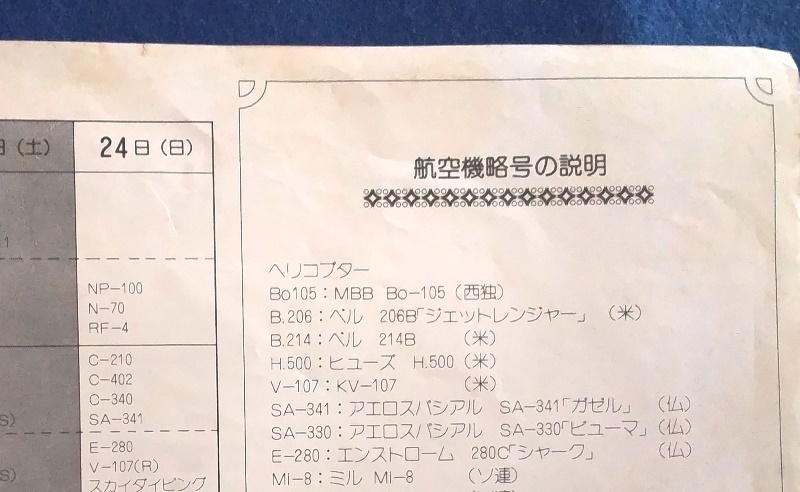 日（土）
24日（日）
1
NP-100
N-70
RF-4
C-210
C-402
C-340
SA-341
S)
E-280
V-107(R)
S)
スカイダイビング
航空機略号の説明
ヘリコプター
Bo105：MBB Bo-105（西独）
B.206：ベル 206B「ジェットレンジャー」（米）
B.214：ベル 214B （米）
H.500：ヒューズ H.500（米）
V-107：KV-107 （米）
SA-341：アエロスパシアル SA-341「ガゼル」（仏）
SA-330：アエロスパシアル SA-330「ピューマ」（仏）
E-280：エンストローム 280C「シャーク」（仏）
Mi-8：ミル Mi-8 （ソ連）